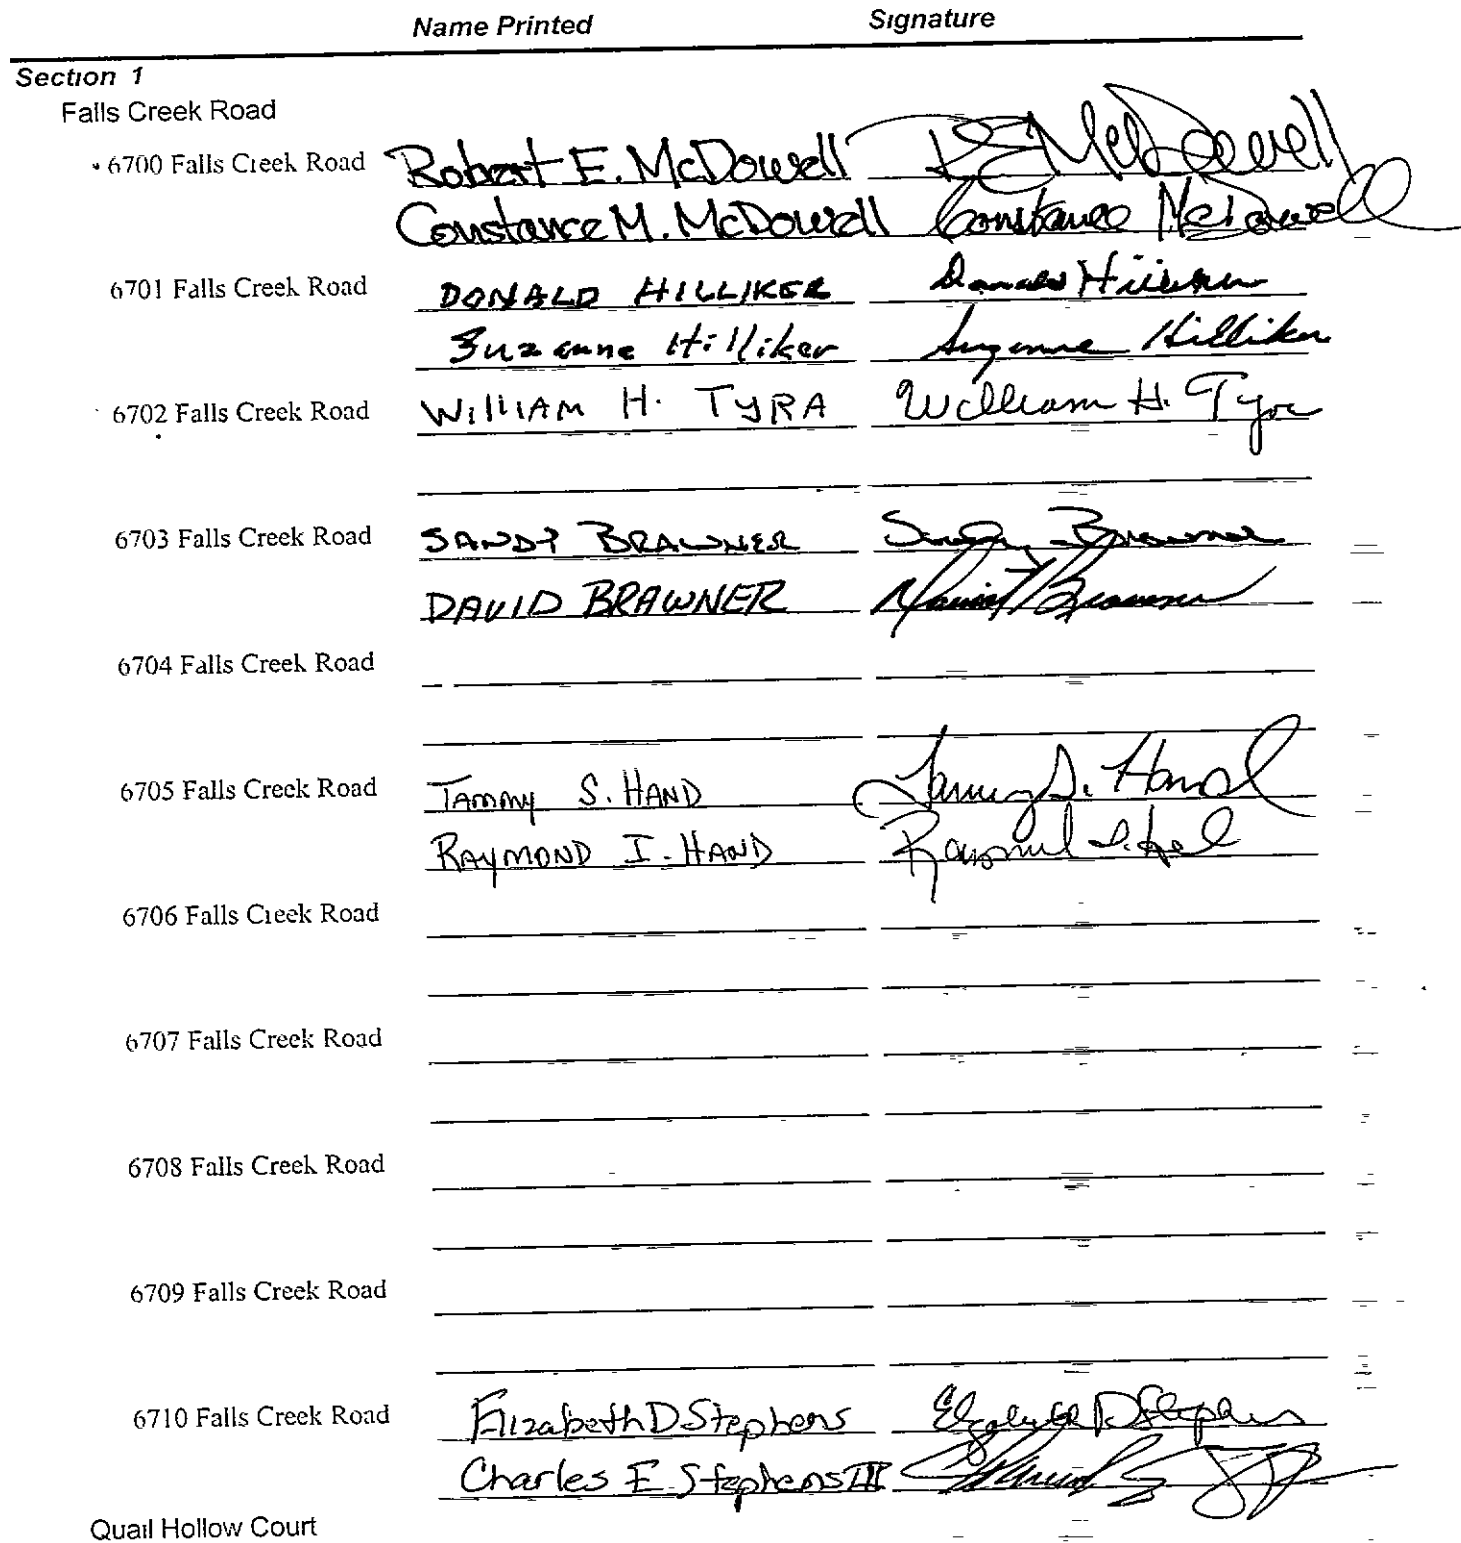 Name Printed Signature
Section 1
Falls Creek Road
6700 Falls Creek Road Robert E. McDowell RE McDowell
Constance M. McDowell Constance McDowell
6701 Falls Creek Road DONALD HILLIKER Donald Hilliker
Suzanne Hilliker Suzanne Hilliker
6702 Falls Creek Road WILLIAM H. TYRA William H. Tyra
6703 Falls Creek Road SANDY BRAWNER Sandy Brawner
DAVID BRAWNER David Brawner
6704 Falls Creek Road
6705 Falls Creek Road TAMMY S. HAND Tammy S. Hand
RAYMOND I. HAND Raymond I. Hand
6706 Falls Creek Road
6707 Falls Creek Road
6708 Falls Creek Road
6709 Falls Creek Road
6710 Falls Creek Road Elizabeth D Stephens Elizabeth D Stephens
Charles E. Stephens III
Quail Hollow Court